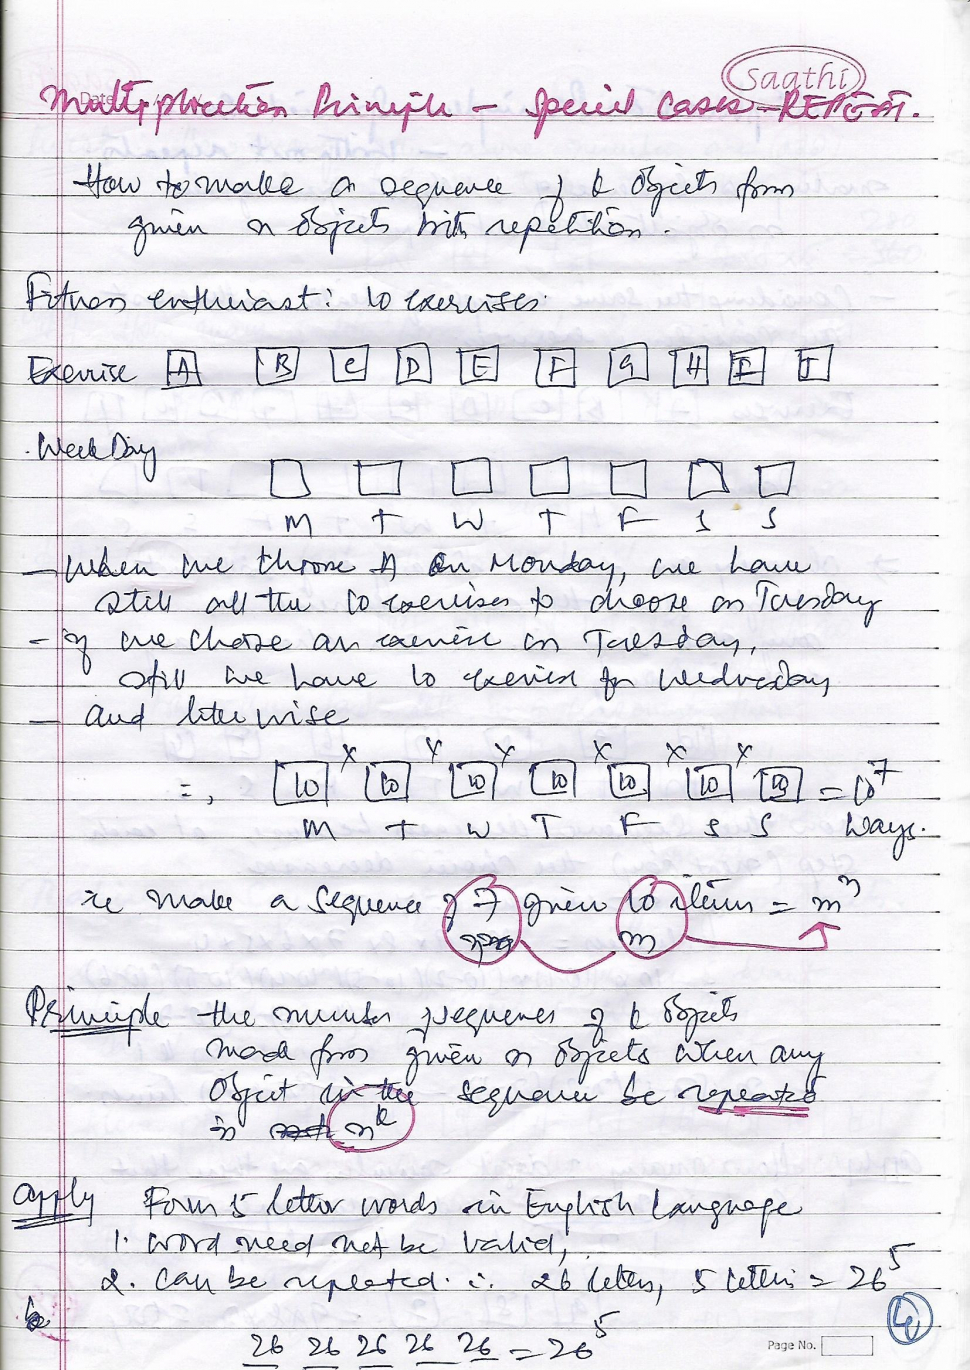 Saathi
Date
Multiplication Principle – Special Cases – REPEAT.
How to make a sequence of k objects from
given n objects with repetition.
Fitness enthusiast: 10 exercises.
Exercise A B C D E F G H I J
Week Day
M T W T F S S
– When we choose A on Monday, we have
still all the 10 exercises to choose on Tuesday
– if we chose an exercise on Tuesday,
still we have 10 exercises for Wednesday
– and likewise
= , 10 × 10 × 10 × 10 × 10 × 10 × 10 = 10⁷
M T W T F S S Ways.
ie make a sequence of 7 given 10 items =
m
Principle the number sequences of k objects
made from given n objects when any
object in the sequence be repeated
is nᵏ
Apply Form 5 letter words in English Language
1. word need not be valid,
2. can be repeated. ∴ 26 letters, 5 letters = 26⁵
4
26 26 26 26 26 = 26⁵
Page No.